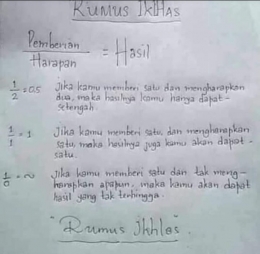 Rumus Ikhlas
Pemberian
Harapan
= Hasil
1/2 = 0.5 Jika kamu memberi satu dan mengharapkan
dua, maka hasilnya kamu hanya dapat
setengah.
1/1 = 1 Jika kamu memberi satu dan mengharapkan
satu, maka hasilnya juga kamu akan dapat
satu.
1/0 = ∞ Jika kamu memberi satu dan tak meng-
harapkan apapun, maka kamu akan dapat
hasil yang tak terhingga.
"Rumus Ikhlas"